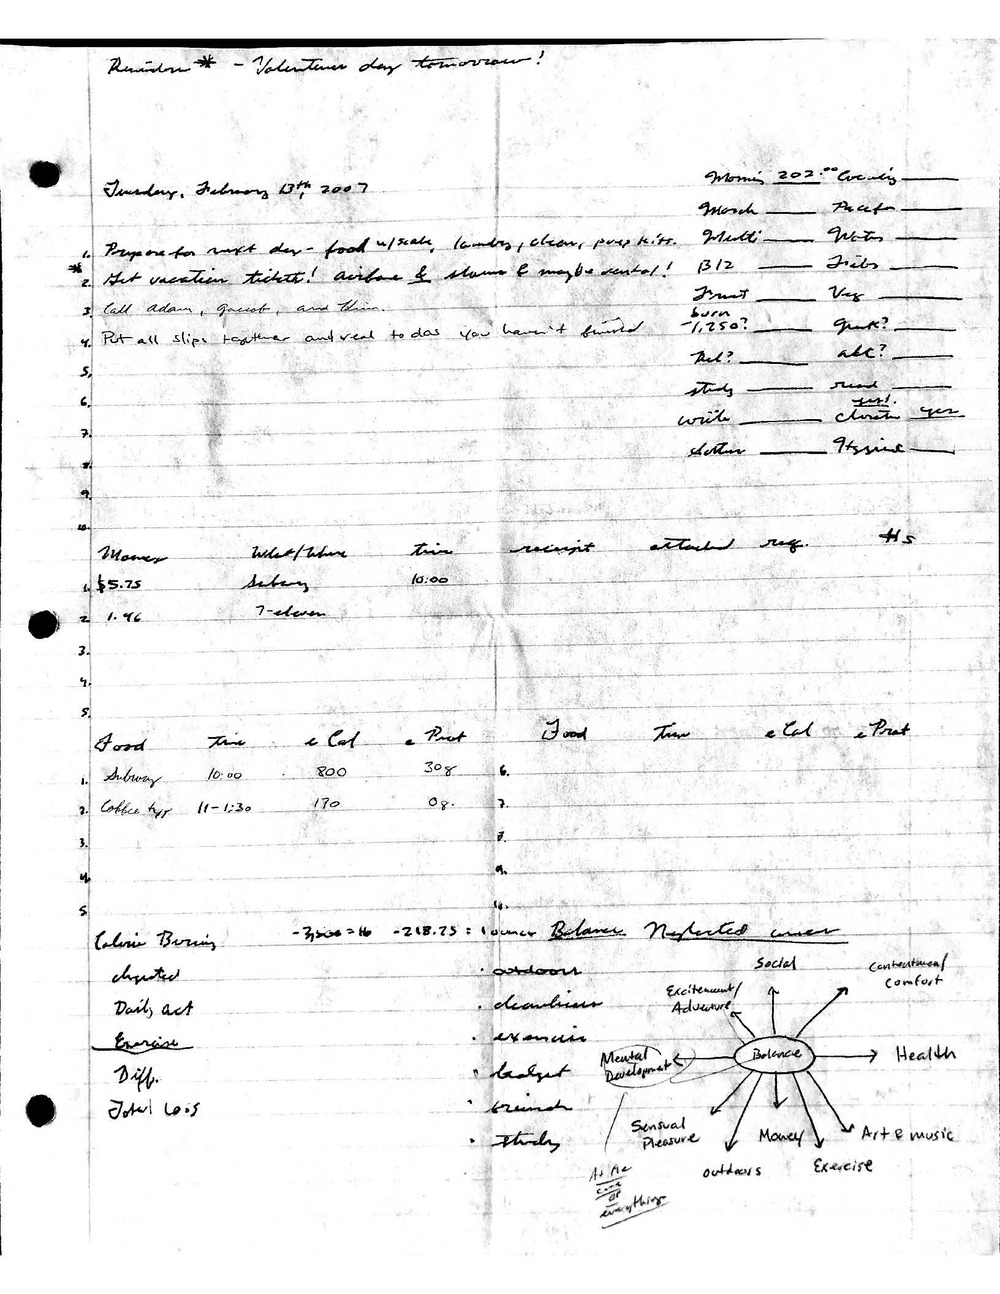 Reminder * - Valentines day tomorrow!
Tuesday, February 13th, 2007
1. Prepare for next day - food w/scale, laundry, clean, prep kits.
* 2. Get vacation tickets! airfare & shows & maybe rental!
3. Call Adam, and
4. Put all slips together and read to dos you haven't finished
5.
6.
7.
8.
9.
10.
Morning 202.00 Evening
March
Multi Water
B12
Fruit Veg
burn
-1,250?
abc?
study read
yes!
write yes
Hygiene
Money What/Where time receipt attached req. #s
1. $5.75 Subway 10:00
2. 1.96 7-eleven
3.
4.
5.
Food Time e Cal e Prot Food Time e Cal e Prot
1. Subway 10:00 800 30g 6.
2. Coffee 11-1:30 130 0g. 7.
3. 8.
4. 9.
5 10.
Calorie Burning -3,500 = lb -218.75 = 1 ounce Balance Neglected
Digested
Daily act
Exercise
Diff.
Total Loss
· outdoors
· cleanliness
· exercise
· budget
· friends
· study
Social
Contentment/
Comfort
Excitement/
Adventure
Balance
Health
Mental
Development
Sensual
Pleasure
Money
Art & music
outdoors
Exercise
At the
core
of
everything